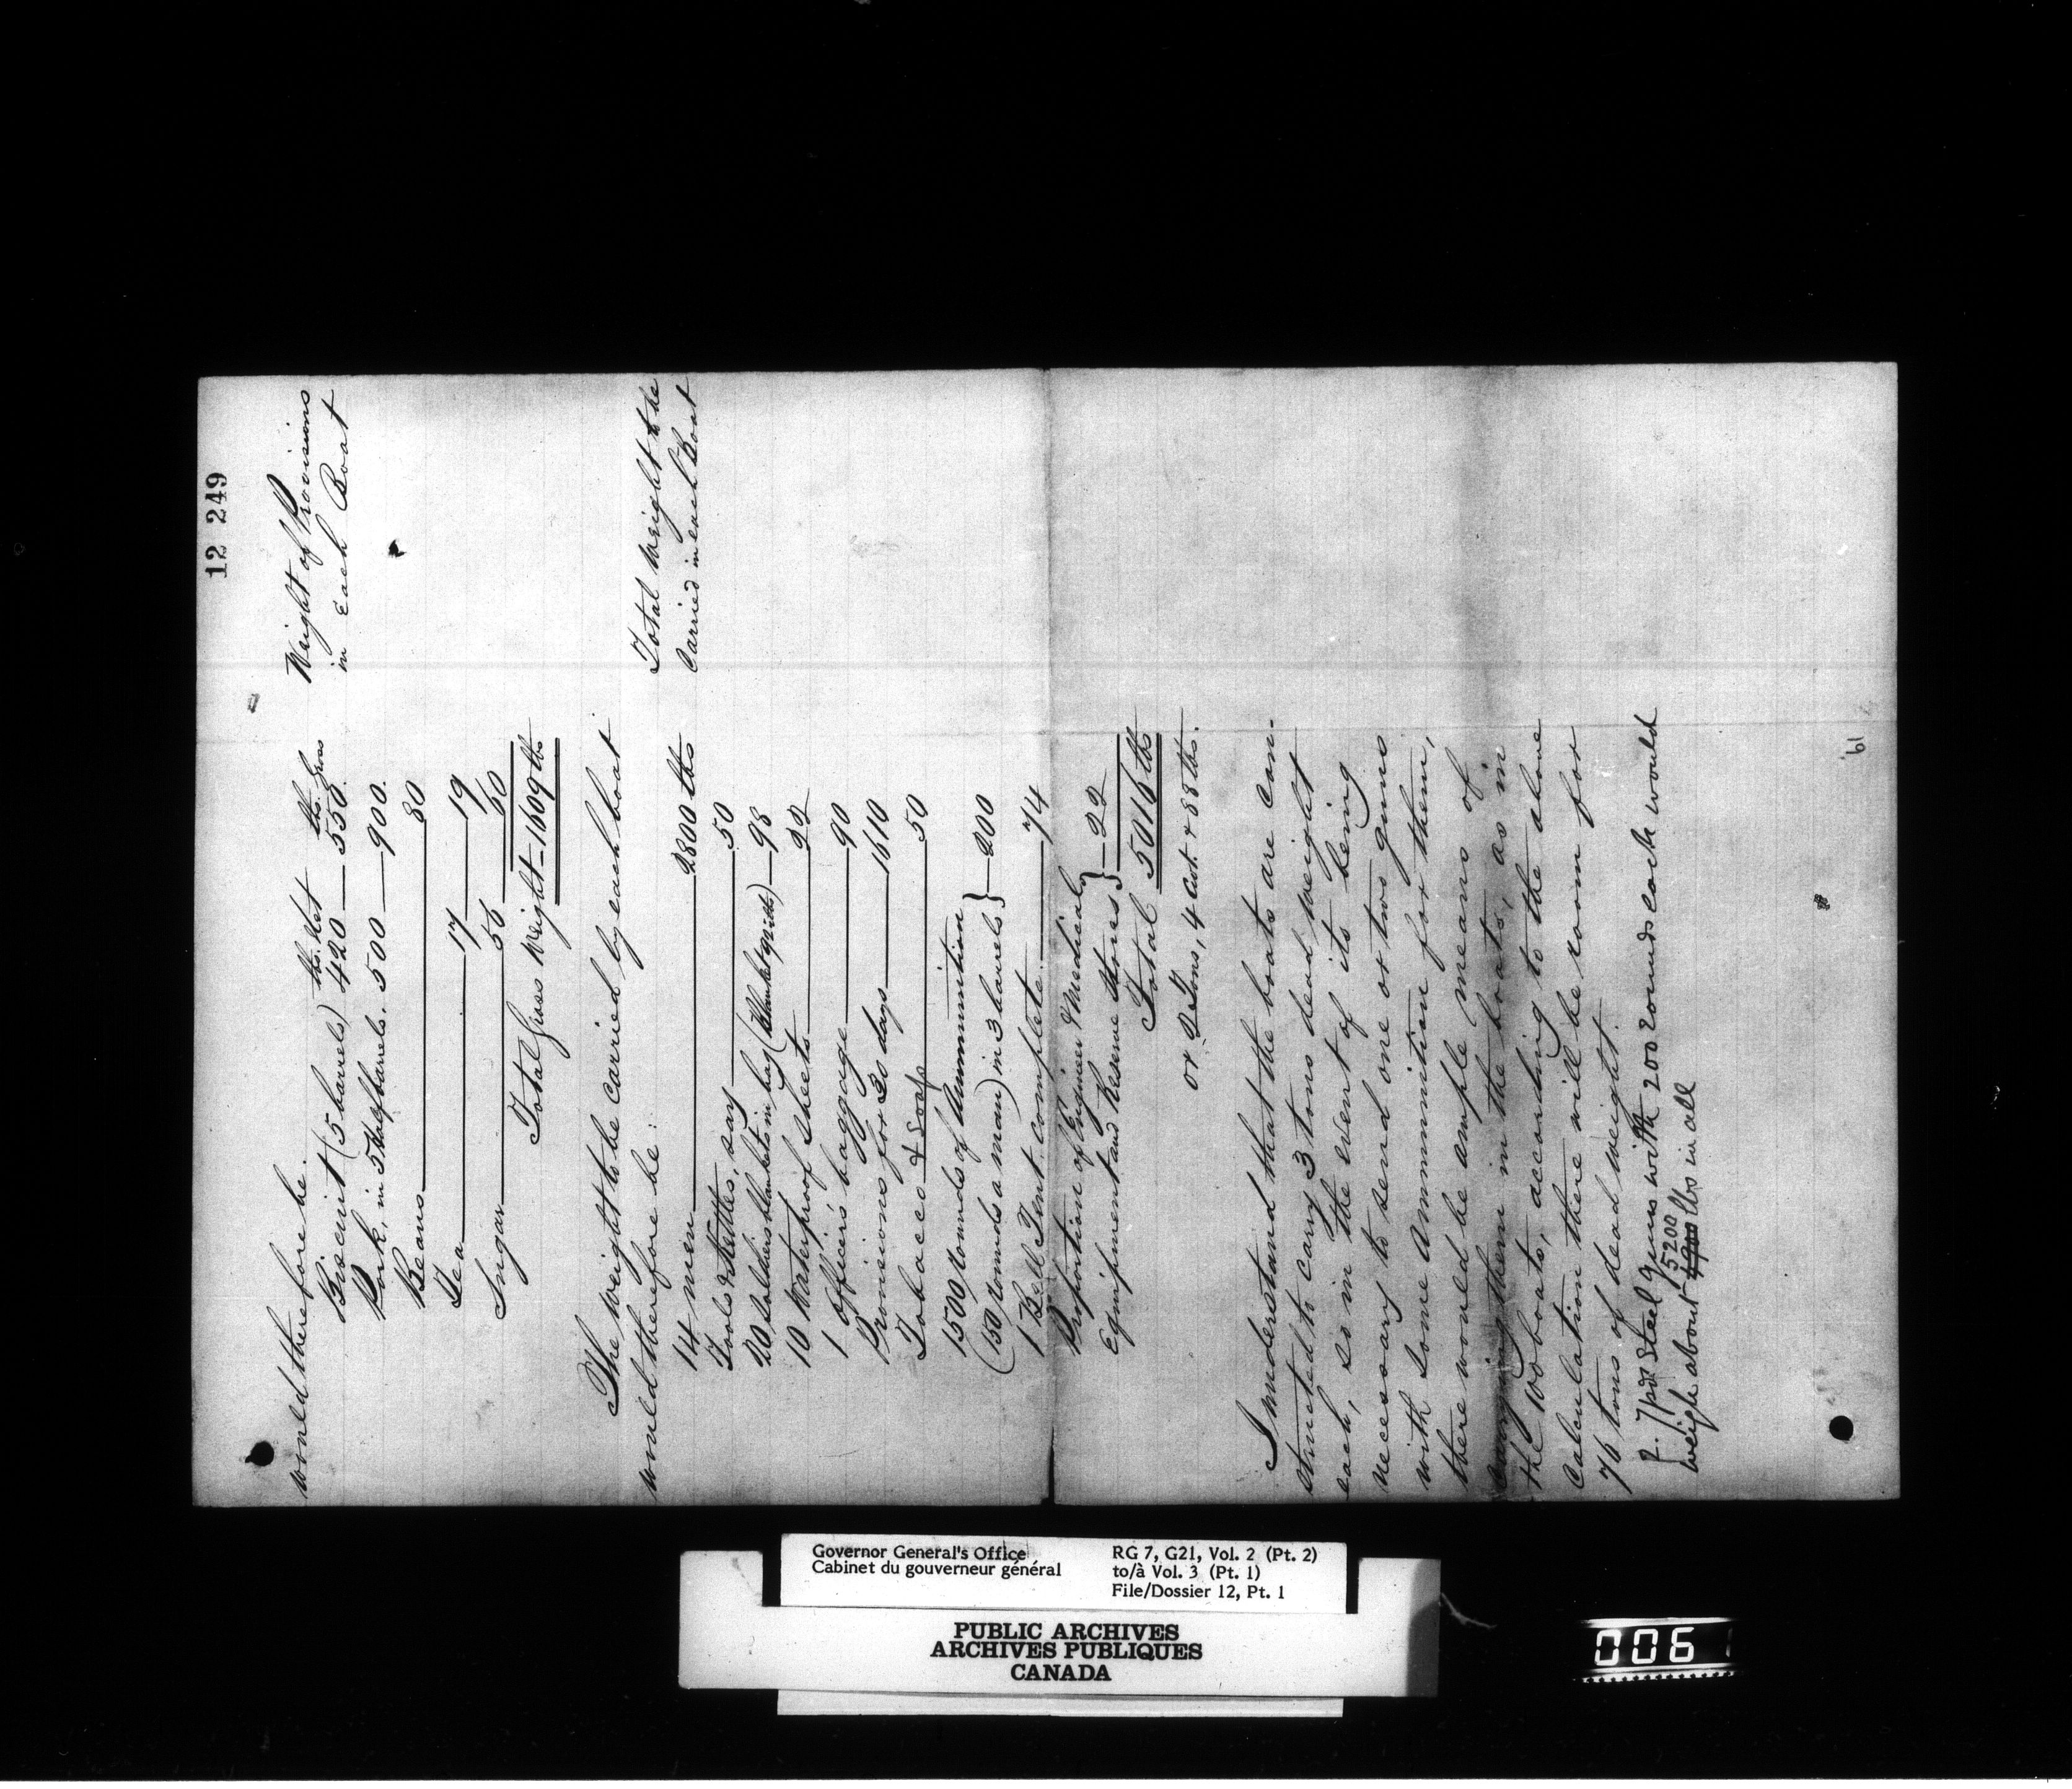 12 249
Weight of Provisions
in Each Boat
would therefore be.
lbs. Net lbs. Gross
Biscuit (5 barrels) 420 — 550.
Pork, in 5 Half barrels. 500 — 900.
Beans — 80
Tea — 17 — 19
Sugar — 56 — 60
Total Gross Weight — 1609 lbs
The weight to be carried by each boat
would therefore be:
Total Weight to be
Carried in each Boat
14 men — 2800 lbs
Tools & Kettles, say — 50
20 Soldiers blankets in bag (Blanket 9 each) — 98
10 Waterproof Sheets — 22
1 Officers' baggage — 90
Provisions for 30 days — 1610
Tobacco & Soap — 50
1500 rounds of Ammunition
(50 rounds a man) in 3 barrels } — 200
1 Bell Tent, complete. — 74
Proportion of Engineer & Medical
Equipment and Reserve Stores } — 22
Total 5016 lbs
or 2 Tons, 4 Cwt. & 88 lbs.
I understand that the boats are con-
structed to carry 3 tons dead weight
each, so in the event of its being
necessary to send one or two guns
with some Ammunition for them,
there would be ample means of
carrying them in the boats, as in
the 100 boats, according to the above
Calculation there will be room for
76 tons of dead weight.
2. 7 pdr Steel guns with 200 rounds each would
5200
weigh about lbs in all
19
Governor General's Office
Cabinet du gouverneur général
RG 7, G21, Vol. 2 (Pt. 2)
to/à Vol. 3 (Pt. 1)
File/Dossier 12, Pt. 1
PUBLIC ARCHIVES
ARCHIVES PUBLIQUES
CANADA
0061